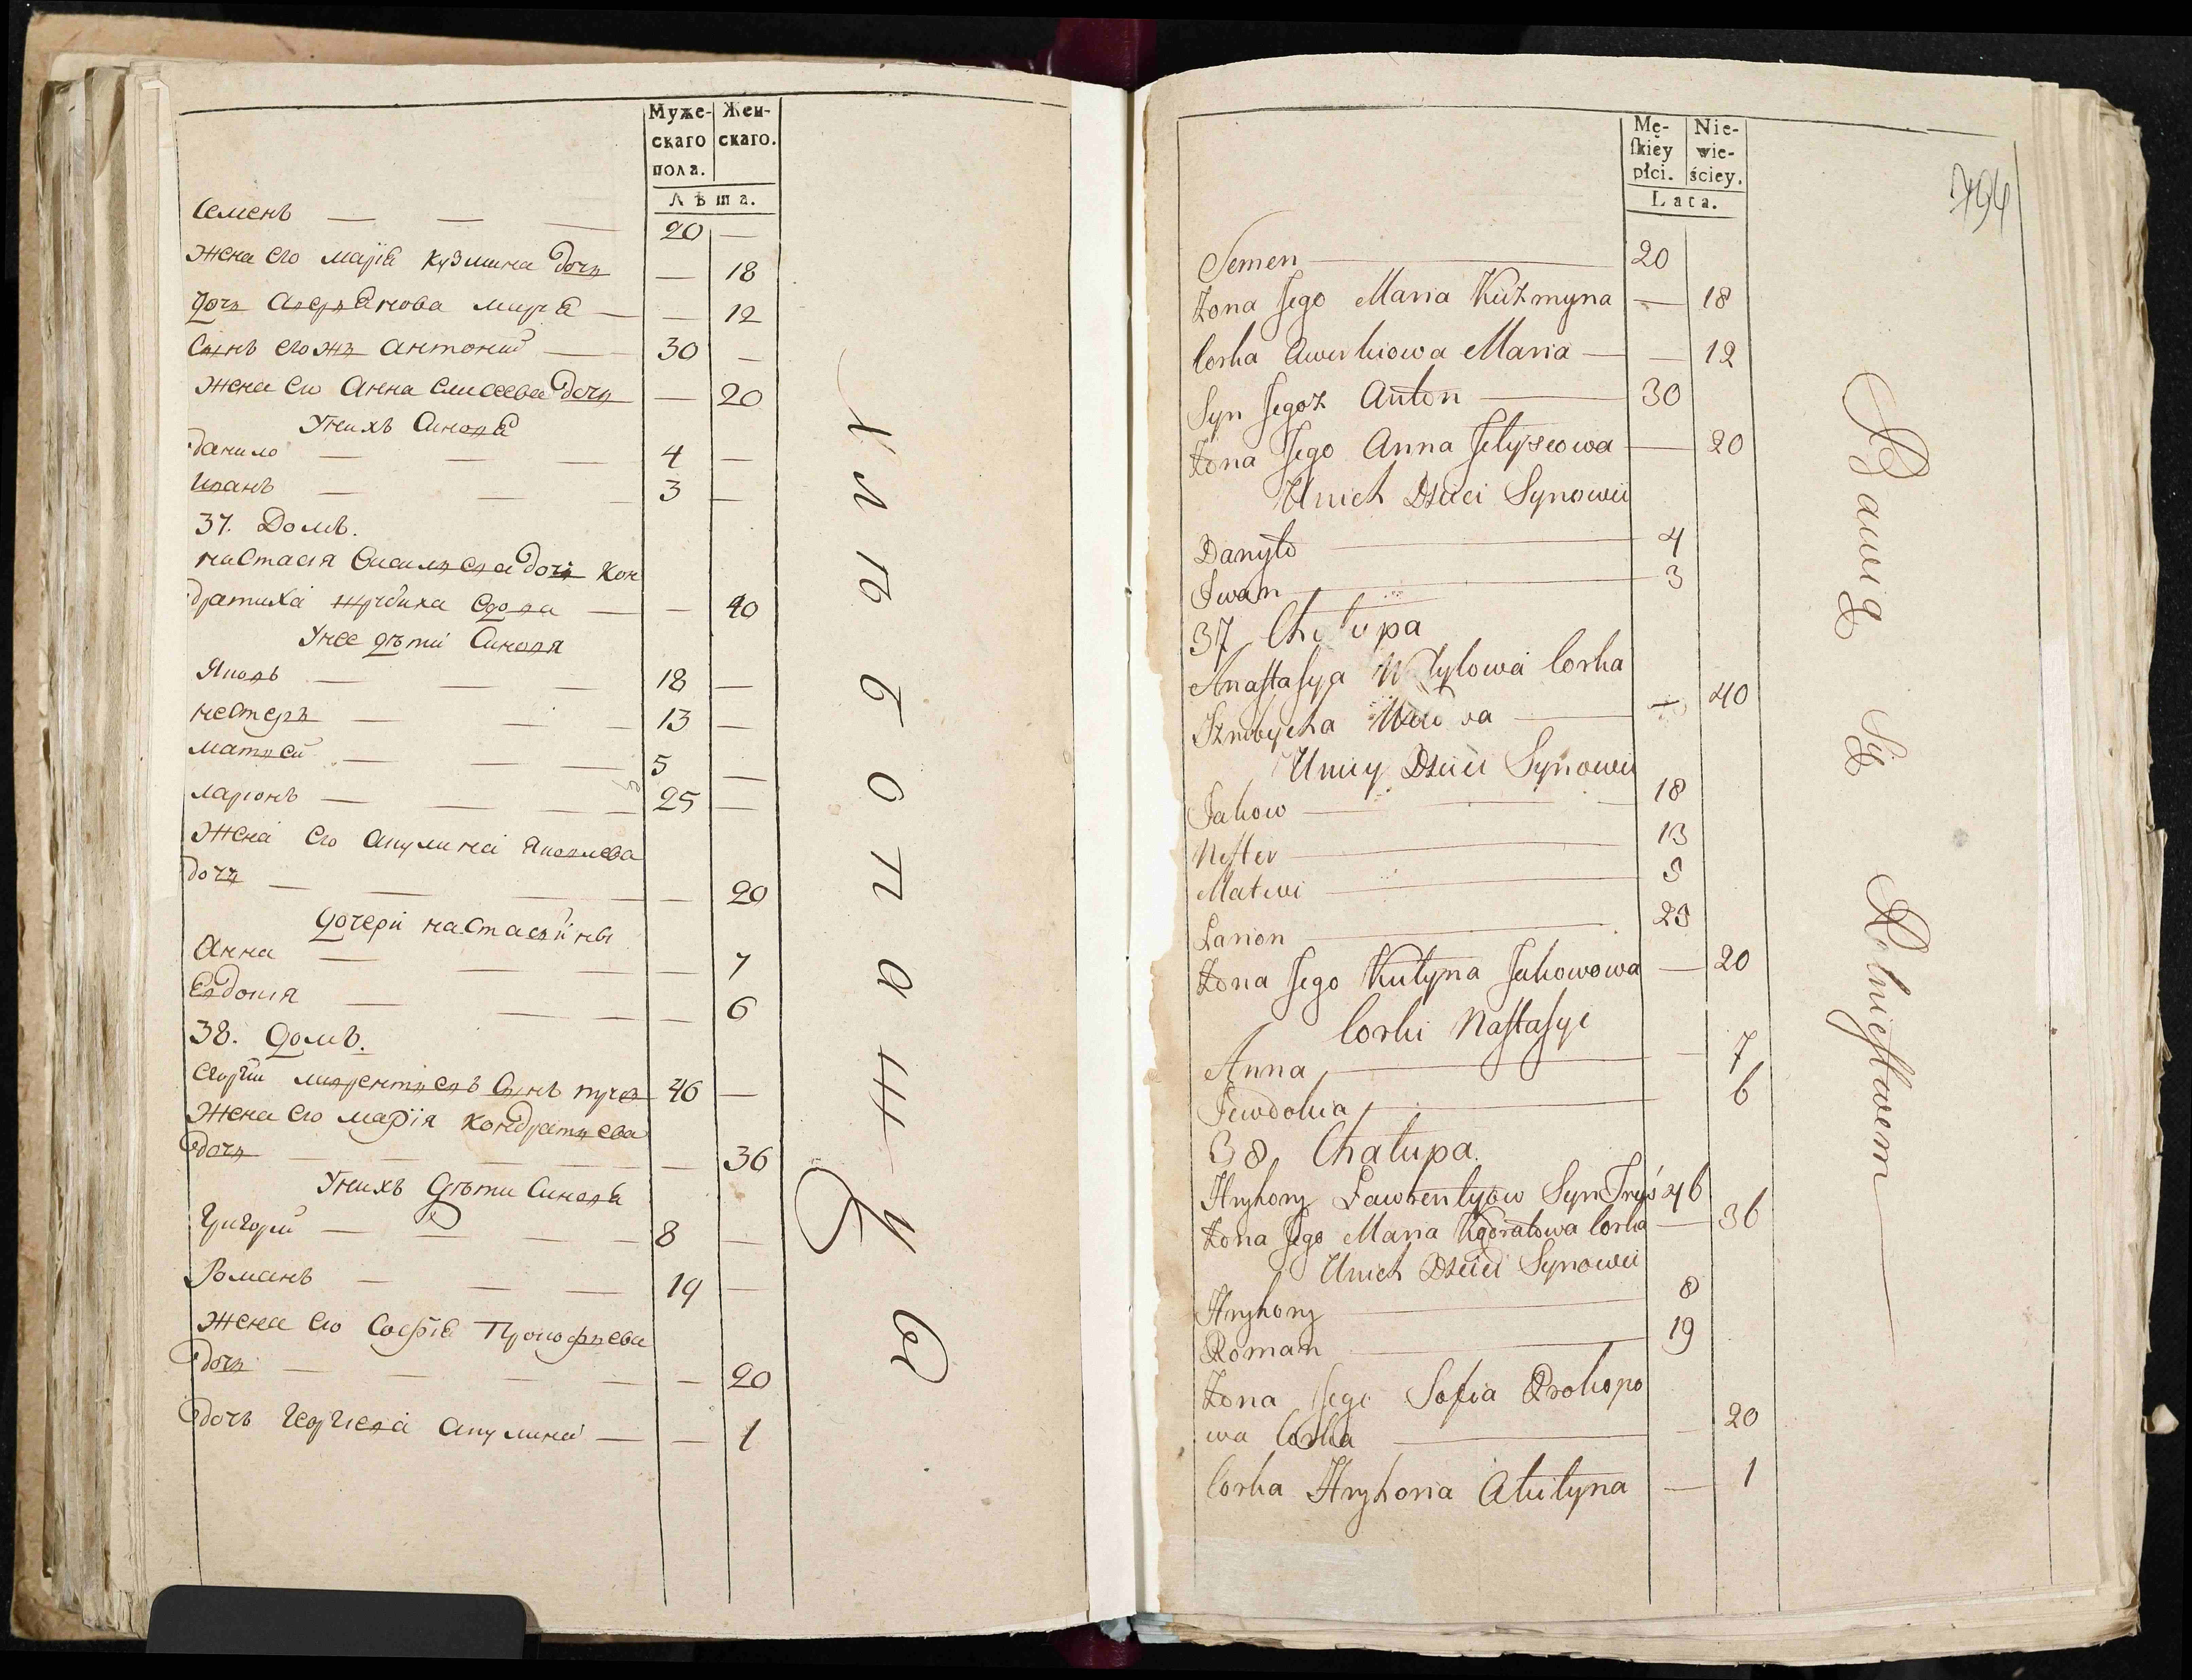 Муже-
скаго
пола.
Жен-
скаго.
Лѣта.
Семенъ — — — 20 —
Жена его марія кузмина дочь — 18
дочь аверкиева марія — — 12
Сынъ егожъ антоній — 30 —
Жена его анна елисеева дочь — 20
Унихъ Синовя
данило — — — 4 —
Иванъ — — — 3 —
37. Домъ.
настасія василева дочь кон
дратиха вдова — — 40
Унее дѣти Синовя
Яковъ — — — 18 —
нестеръ — — — 13 —
матвей — — — 5 —
ларіонъ — — — 25 —
Жена его акулина яковлева
дочь — — — — 20
дочери настасіины
Анна — — — — 7
Евдокія — — — — 6
38. домъ.
лаврентиевъ Сынъ 46 —
Жена его марія кондратиева
дочь — — — — 36
Унихъ дѣти Синовя
Григорій — — — 8 —
Романъ — — — 19 —
жена его софія Прокофиева
дочь — — — — 20
дочь акулина — — 1
Хлѣбопашка
Mę-
ſkiey
płci.
Nie-
wie-
ściey.
Lata.
794
Semen — 20
Żona Jego Maria Kuźmyna — 18
Corka Awerkiowa Maria — — 12
Syn Jegoż Anton — 30
Żona Jego Anna Jełyseowa — 20
Unich Dzieci Synowii
Danyło — 4
Iwan — 3
37 Chałupa
Anaſtaſya Waſylowa Corka
Wdowa — — 40
Uniey Dzieci Synowie
Jakow — 18
Neſter — 13
Matwi — 5
Larion — 25
Żona Jego Kulyna Jakowowa — 20
Corki Naſtaſyi
Anna — — 7
Jewdokia — 6
38 Chałupa.
Hryhory Ławrentyow Syn 46
Żona Jego Maria Kądratowa Corka — 36
Unich Dzieci Synowie
Hryhory — 8
Roman — 19
Żona Jego Sofia Prokopo
wa Corka — — 20
Corka Hryhoria Akulyna — 1
Bawią Się Rolnictwem